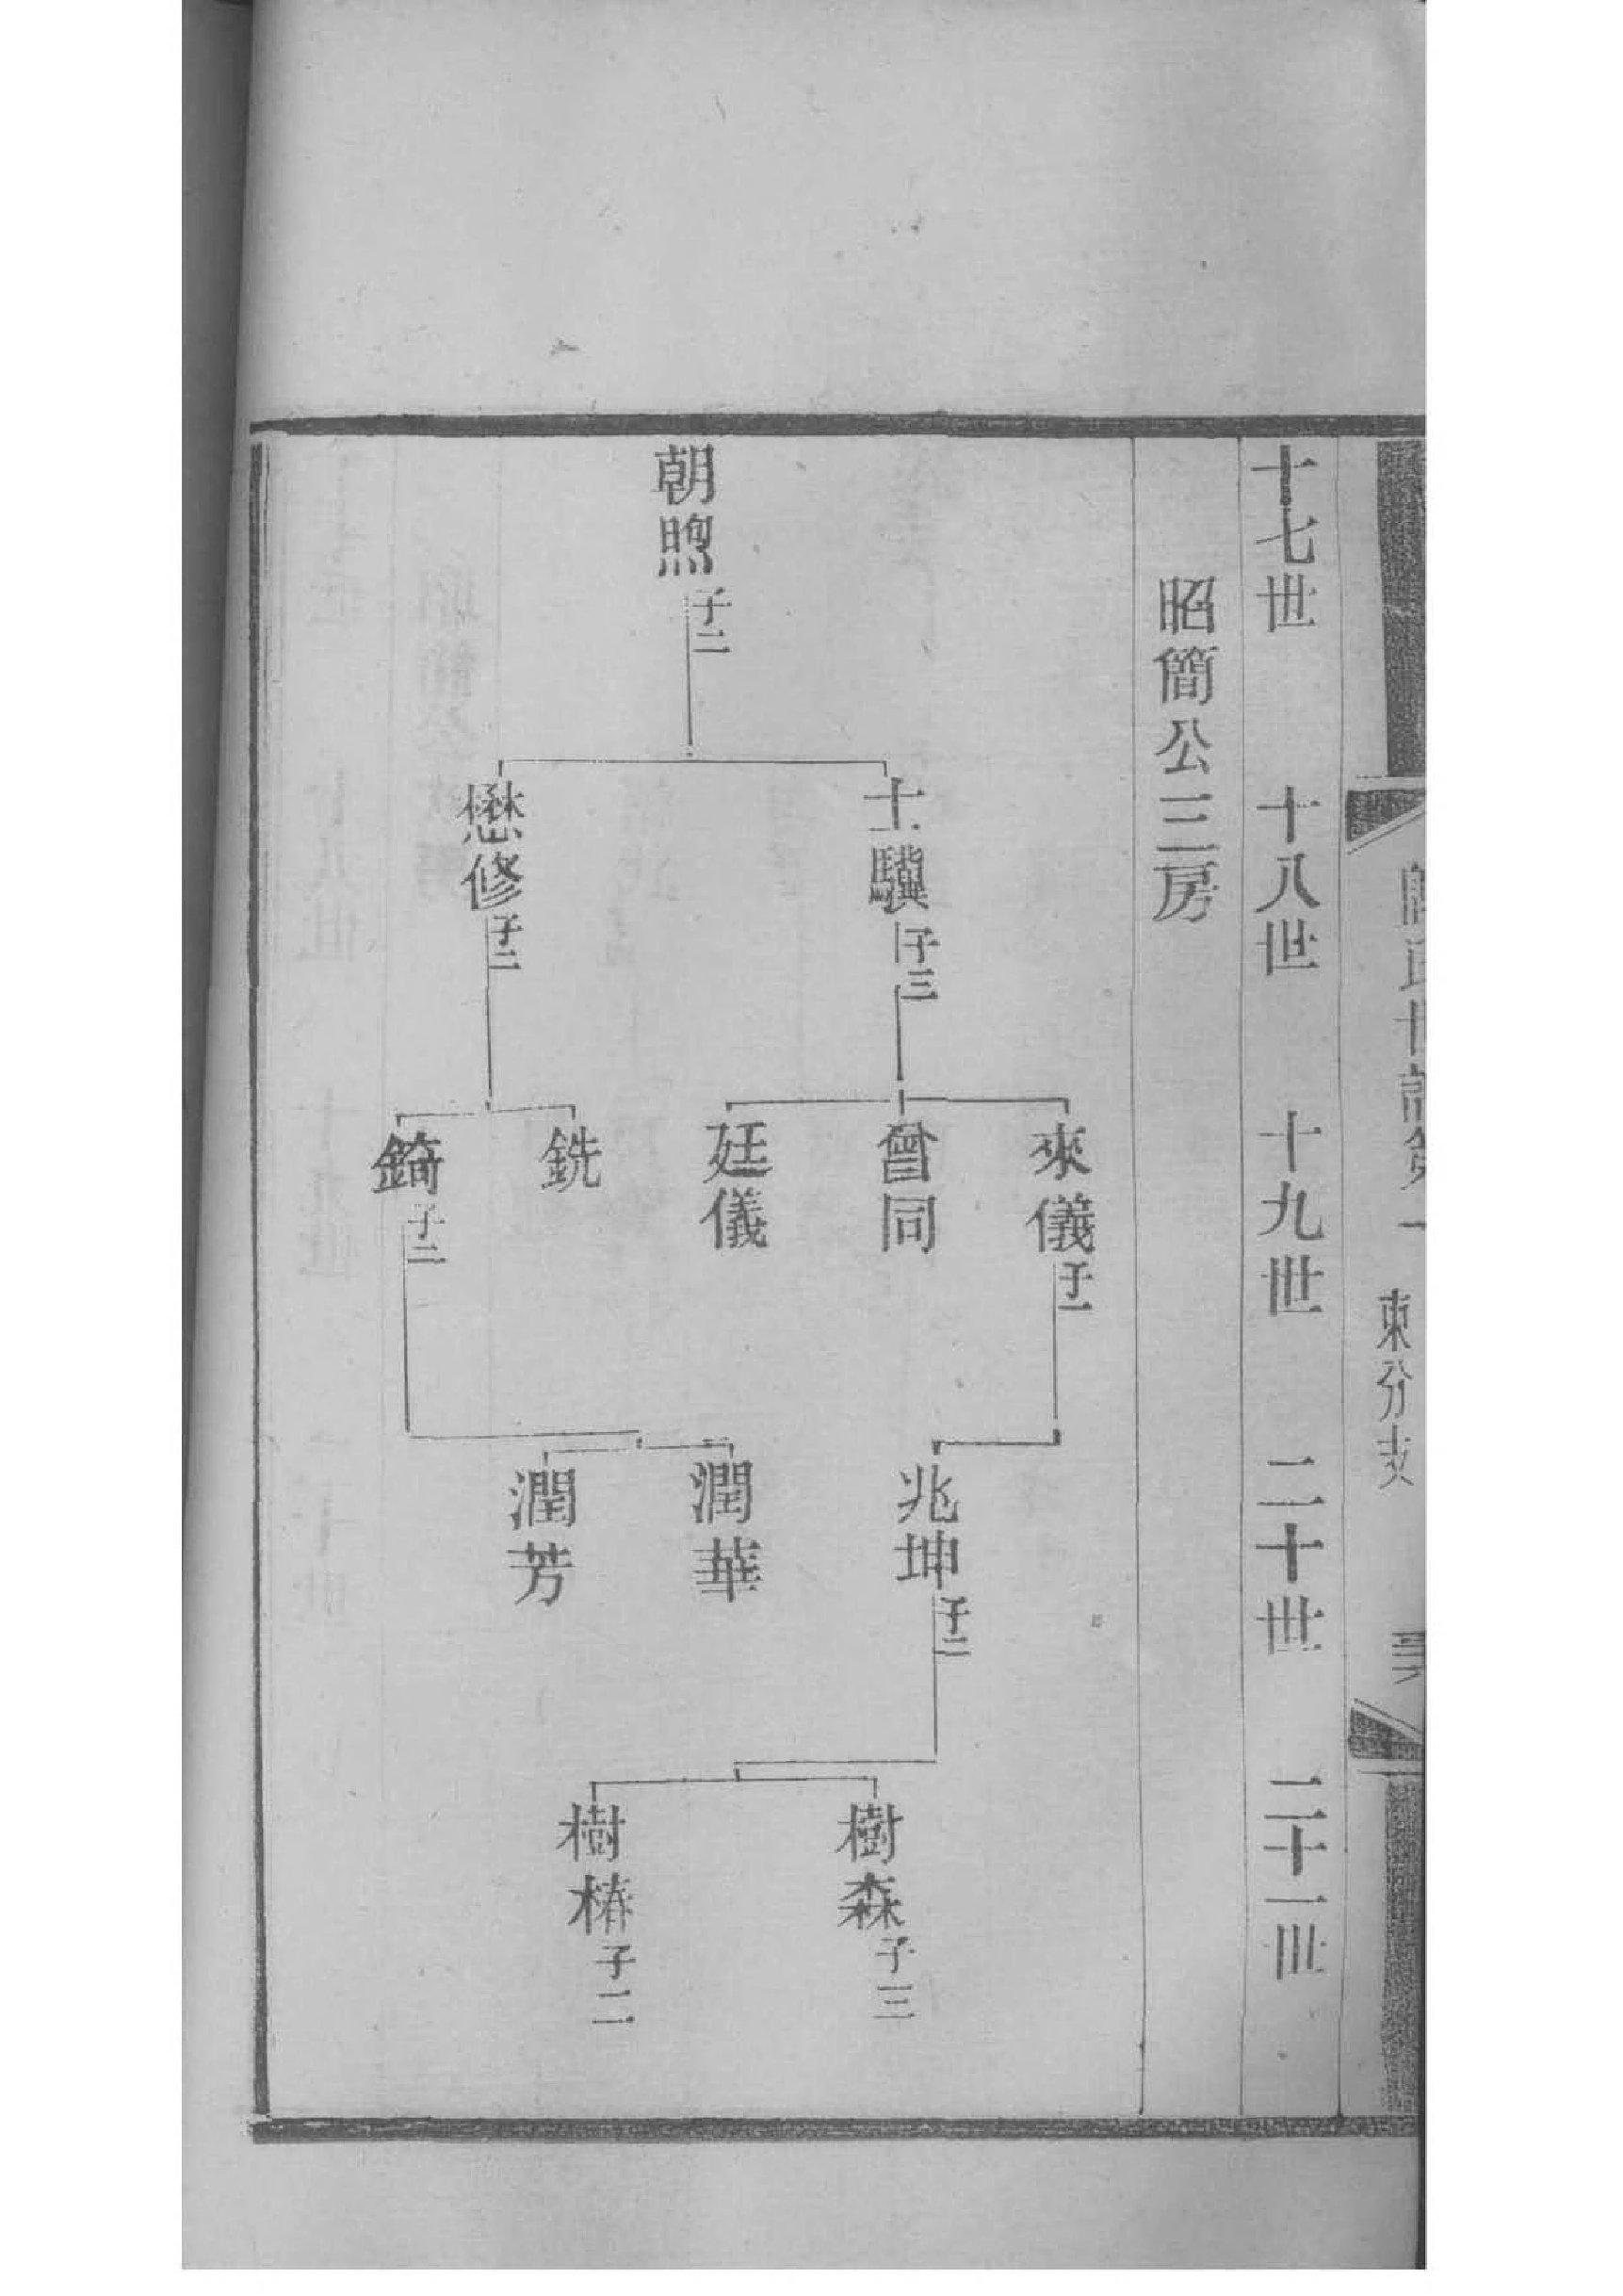 東分支
十七世
十八世
十九世
二十世
二十一世
昭簡公三房
朝煦 子二
士驥 子三
懋修 子二
來儀 子一
曾同
廷儀
銑
錡 子二
兆坤 子二
潤華
潤芳
樹森 子三
樹椿 子二